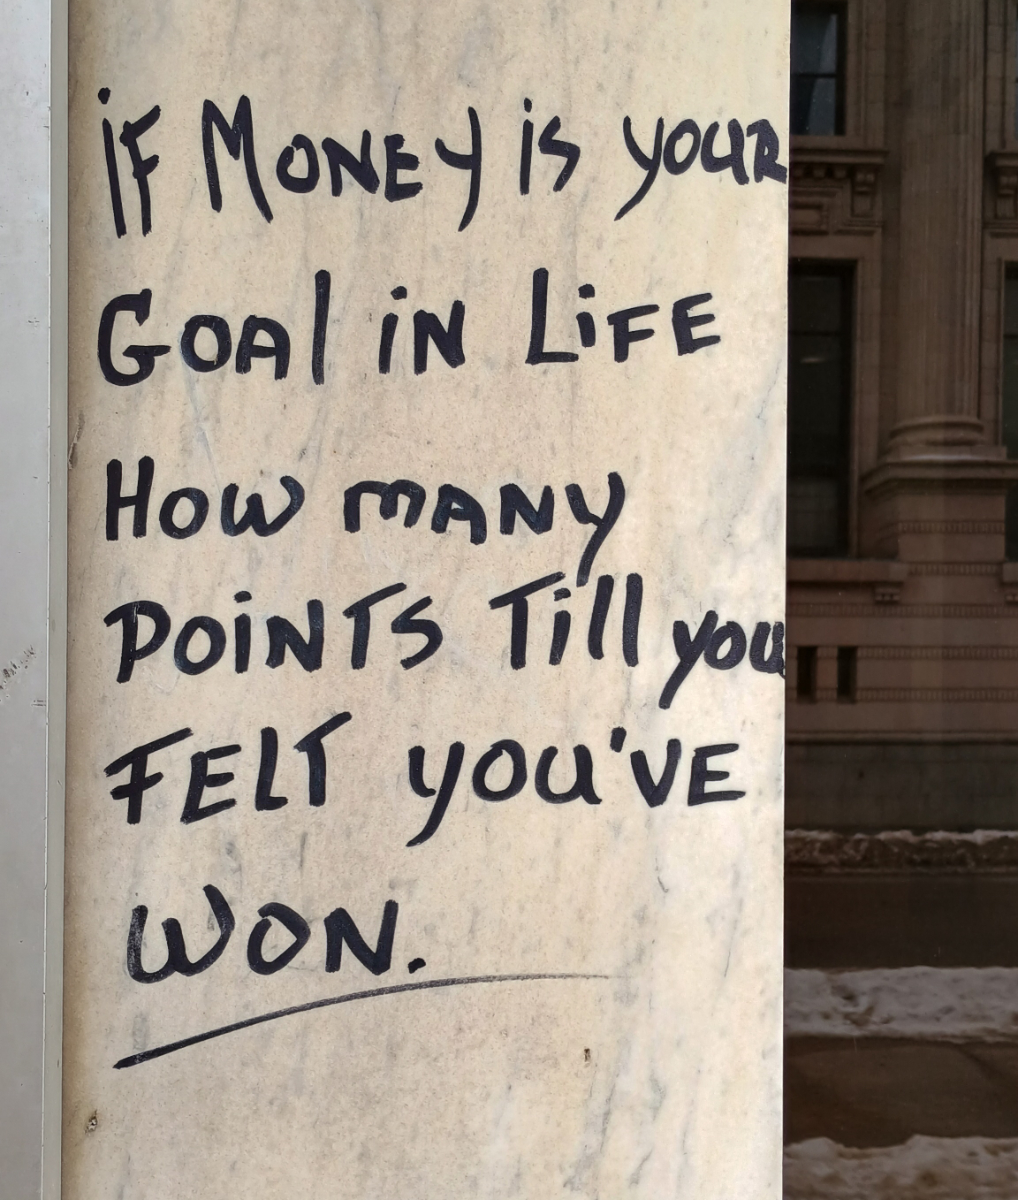 iF MONEY is youR
GOAl iN LiFE
How mANy
POiNTS Till you
FElT you'VE
WON.